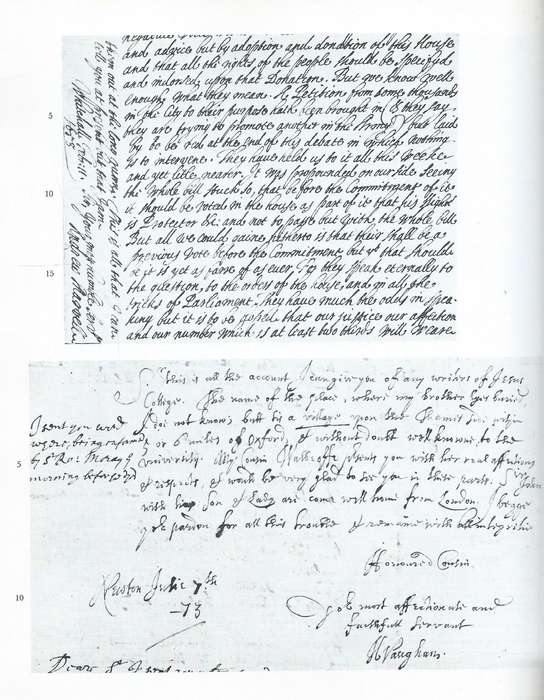 and advice but by adoption and donation of this House
and that all the rights of the people should be specifyd
and indorsed upon that Donation. But we know well
enough what they mean. A Petition from some thousands
5
in the City to their purpose hath been brought in & they say
they are trying to promote another in the Army but laid
by to be red at the end of this debate in which nothing
is to intervene. They have held us to it all this weeke
and yet little nearer. It was propounded on our side seeing
10
the whole bill stuck so, that before the Commitment of it
it should be voted in the house as part of it that his Right
is Protector &c: and not to passe but with the whole bill
But all we could gaine hitherto is that there shall be a
previous Vote before the Commitment but yt that should
15
be it is yet as farre of as ever. For they speak eternally to
the question, to the orders of the house, and in all the
tricks of Parliament. They have much the odds in spea-
king but it is to be hoped that our justice our affection
and our number which is at least two thirds will weare
them out at the long runne. This is all that I can
tell you at present but that I am
Sir, Your most humble Servt
Andrew Marvell
Whitehall
Sr this is all the account I can give you of any writers of Jesus
College. The name of the place, where my brother lyes buried,
I doe not know; butt tis a village upon the Thames side within
5 or 6 miles of Oxford, & without doubt well known to the
University. My Cosin
you with her real affections
& respects, & would be very glad to see you in these parts. Sr John
with his Son & Lady are come well home from London. I begge
yor pardon for all this trouble & remaine with all
I sent you word
morning before
5
Honoured Cousin
Newton Julie 7th
—73
10
Yor most affectionate and
faithfull servant
H Vaughan.
Dear Sr I